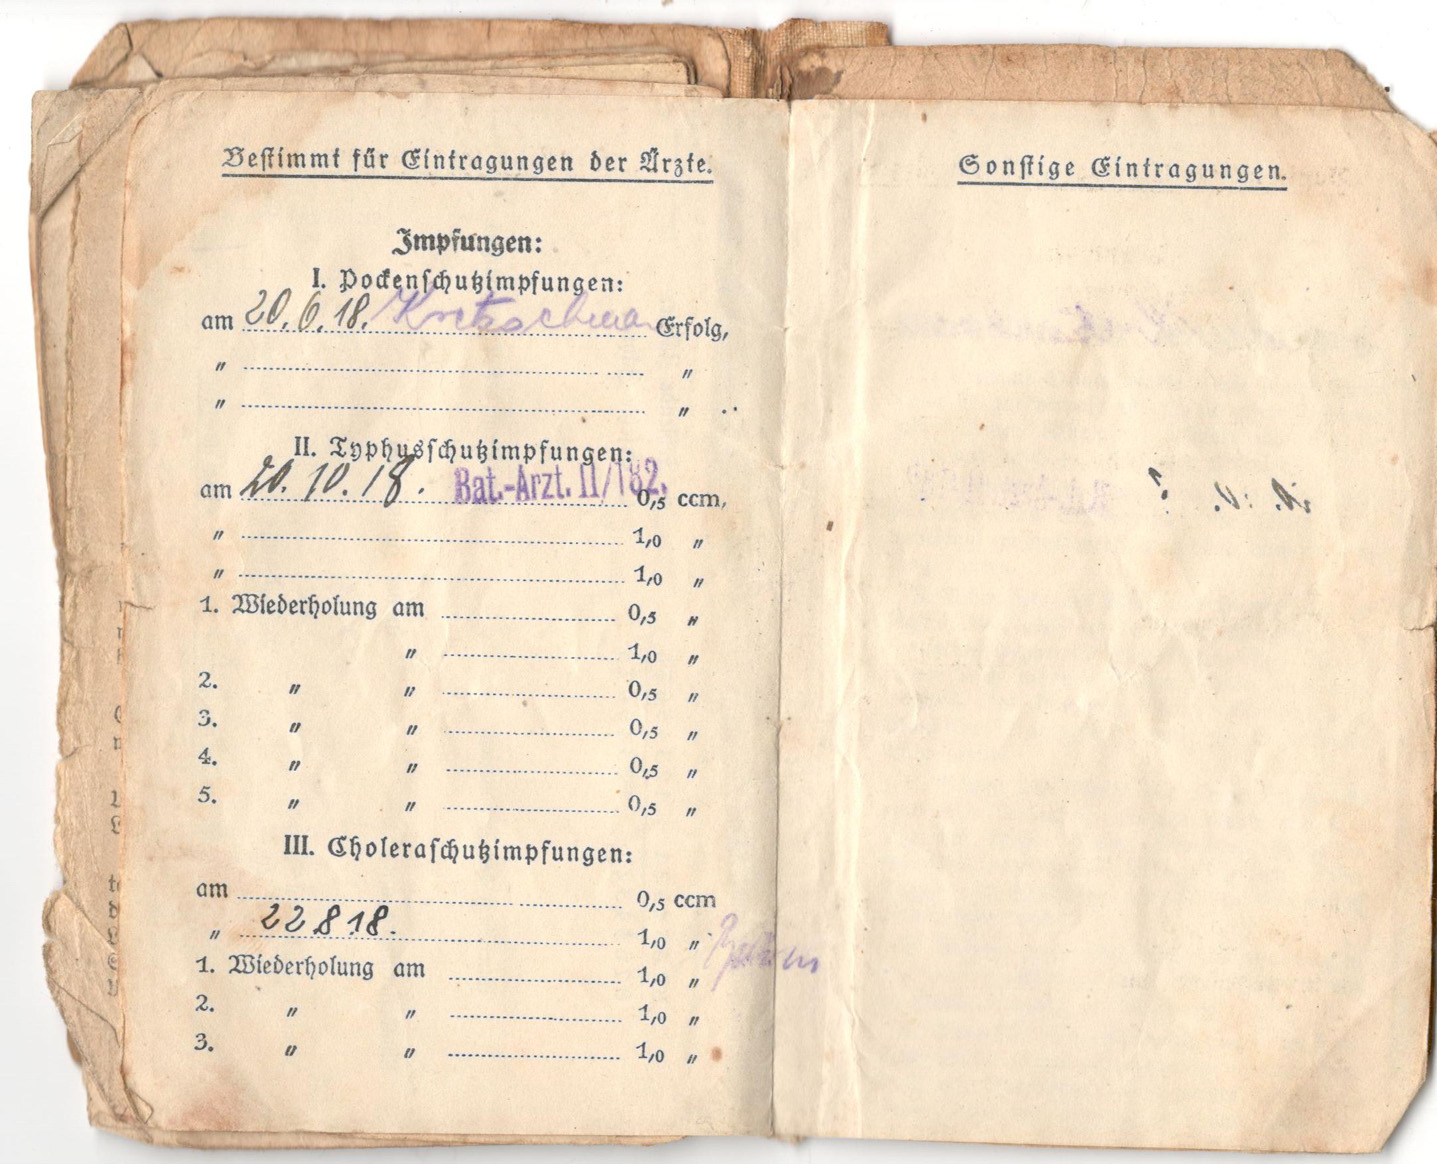 Bestimmt für Eintragungen der Ärzte.
Impfungen:
I. Pockenschutzimpfungen:
am 20.6.18. Erfolg,
" "
" "
II. Typhusschutzimpfungen:
am 20.10.18. Bat.-Arzt. II/182. 0,5 ccm,
" 1,0 "
" 1,0 "
1. Wiederholung am 0,5 "
" 1,0 "
2. " " 0,5 "
3. " " 0,5 "
4. " " 0,5 "
5. " " 0,5 "
III. Choleraschutzimpfungen:
am 0,5 ccm
" 22.8.18. 1,0 "
1. Wiederholung am 1,0 "
2. " " 1,0 "
3. " " 1,0 "
Sonstige Eintragungen.